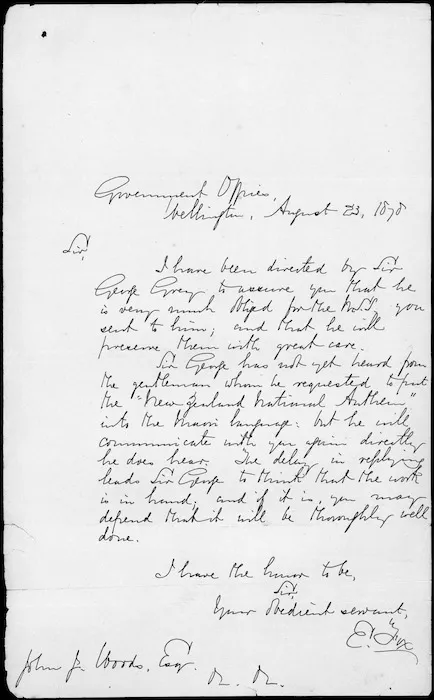 Government Offices,
Wellington, August 23, 1878
Sir,
I have been directed by Sir
George Grey to assure you that he
is very much obliged for the M.S.S. you
sent to him; and that he will
preserve them with great care.
Sir George has not yet heard from
the gentleman whom he requested to put
the "New Zealand National Anthem"
into the Maori language: but he will
communicate with you again directly
he does hear. The delay in replying
leads Sir George to think that the work
is in hand; and if it is, you may
depend that it will be thoroughly well
done.
I have the honor to be,
Sir,
Your obedient servant,
E. Fox
John J. Woods, Esq.